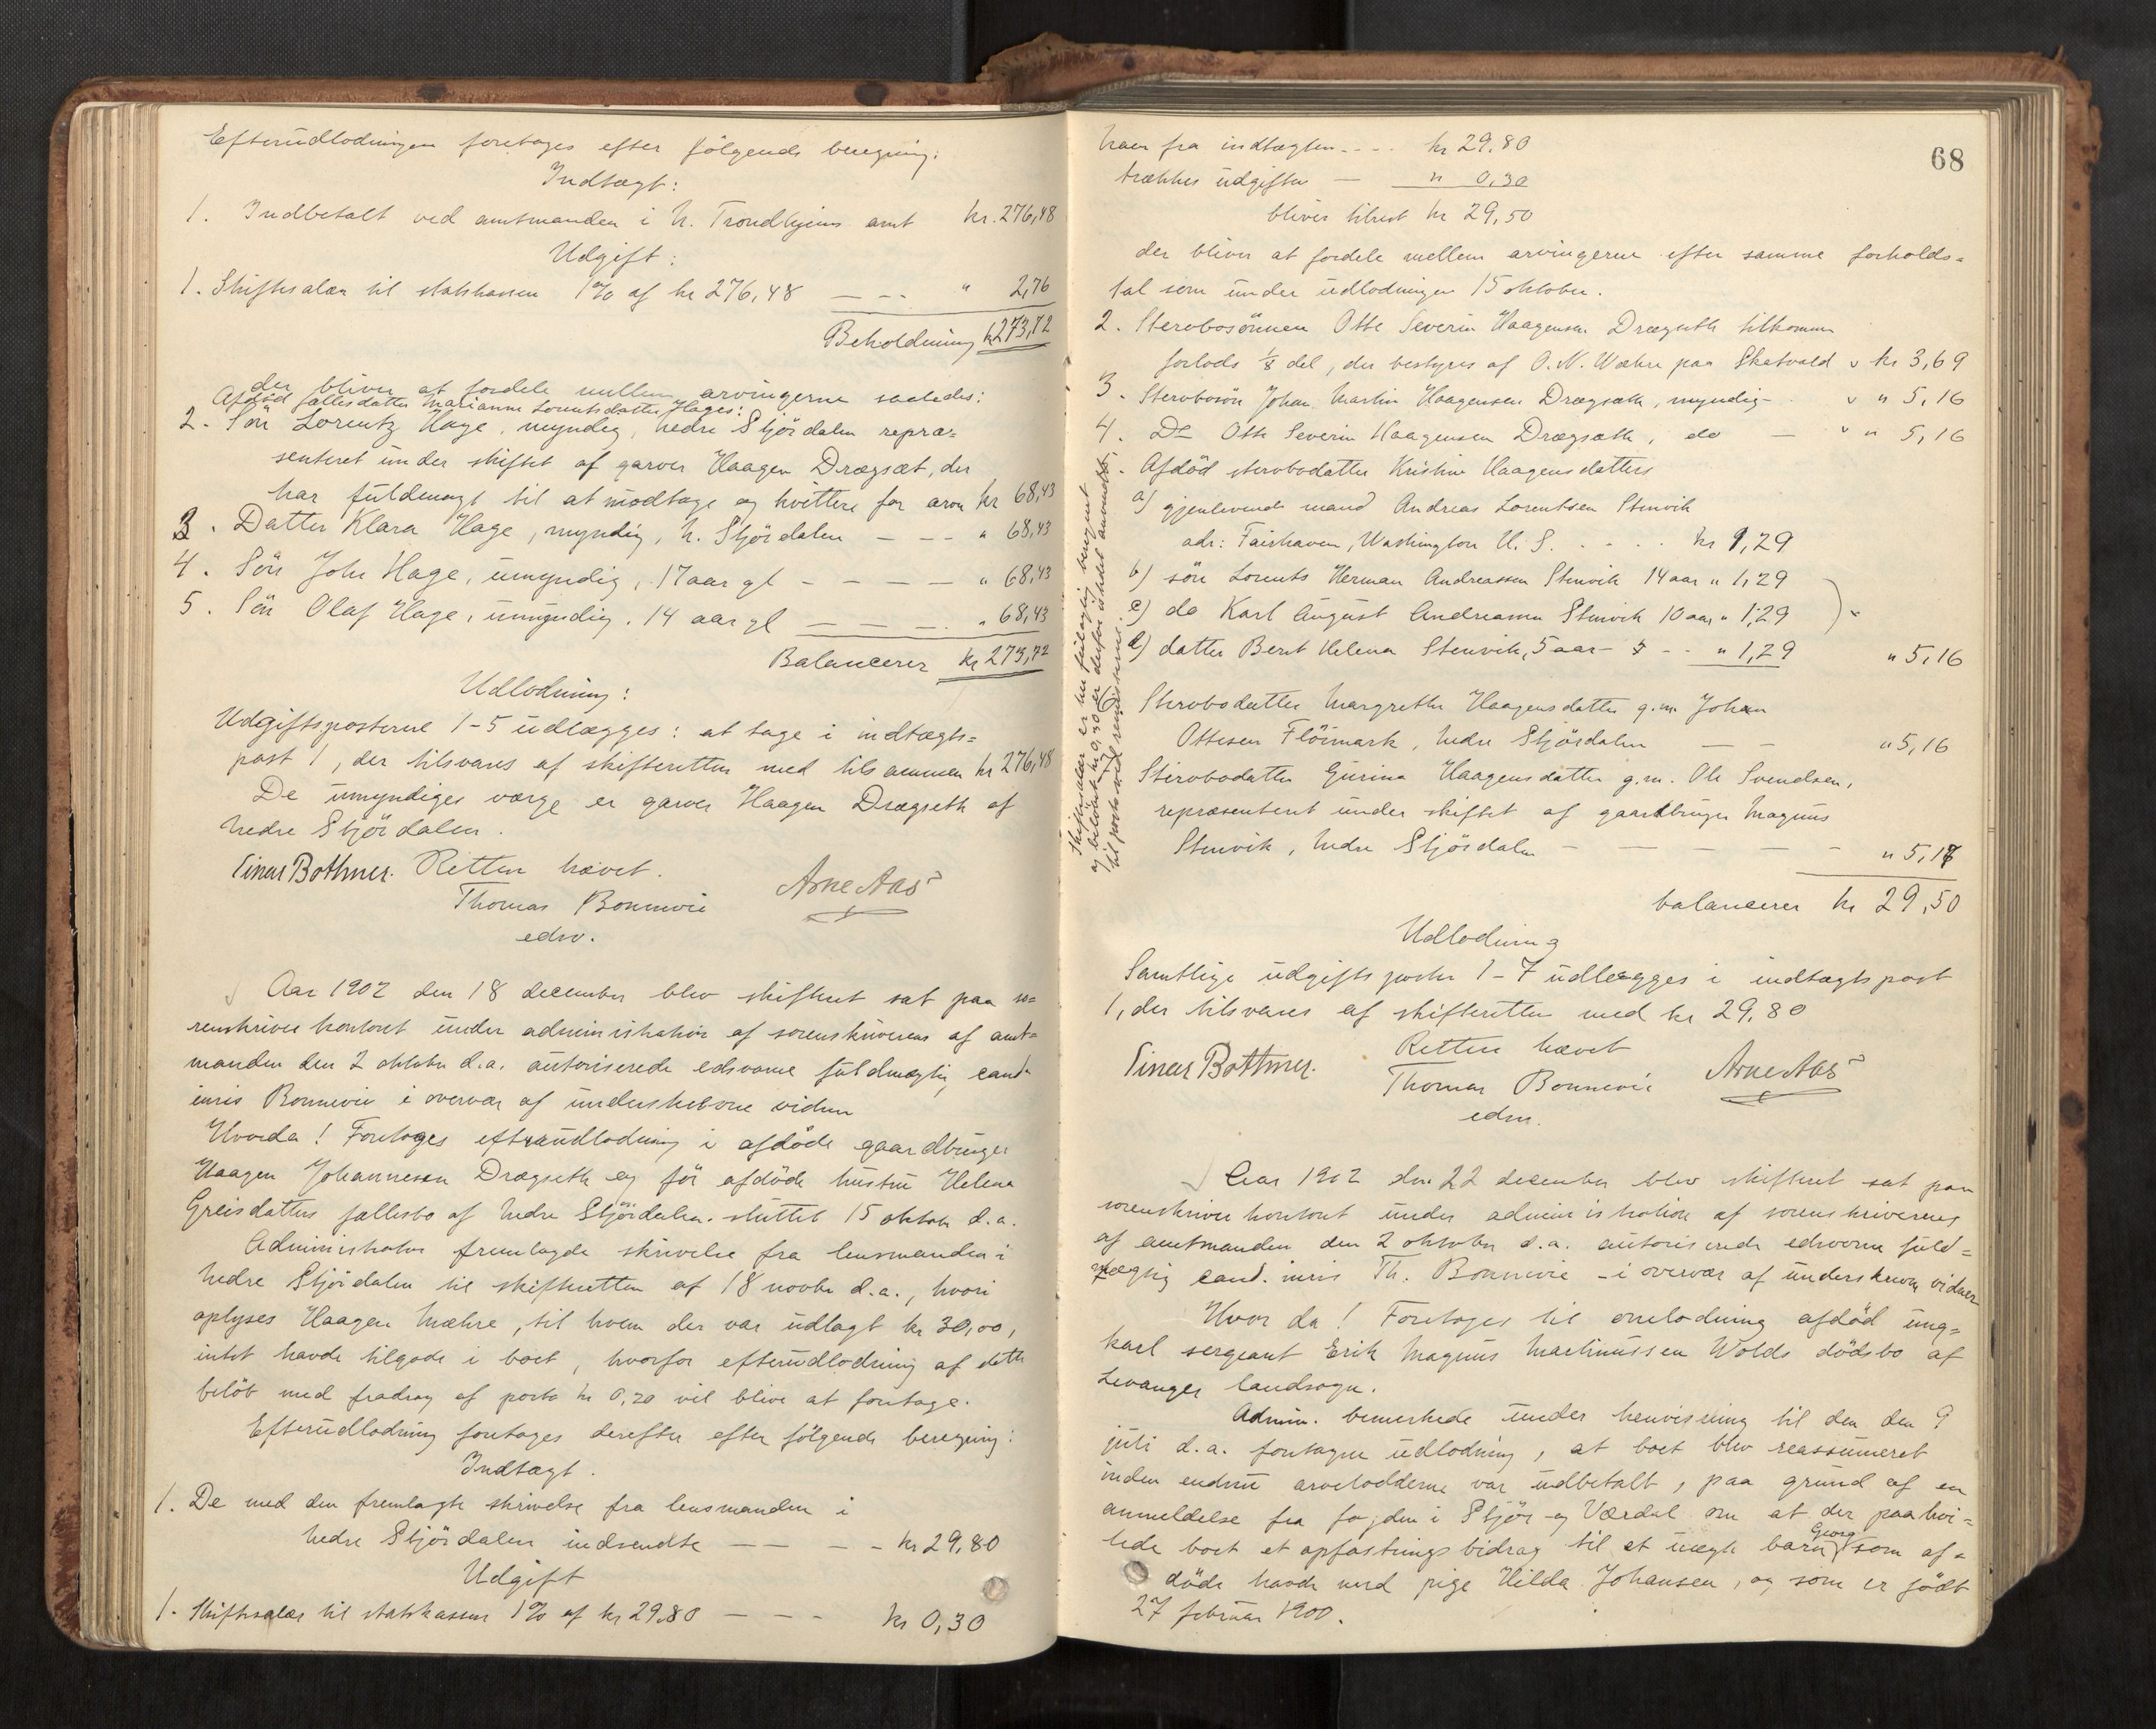 Efterudlodningen foretages efter følgende beregning:
Indtægt:
1. Indbetalt ved amtmanden i N. Trondhjems amt kr. 276,48
Udgift:
1. Skiftesalær til statskassen 1% af kr 276,48 — - - " 2,76
Beholdning kr 273,72
der bliver at fordele mellem arvingerne saaledes:
Afdød fællesdatter Marianne Lorentsdatter Hages:
2. Søn Lorentz Hage, myndig, Nedre Stjørdalen repræ=
senteret under skiftet af garver Haagen Drægset, der
har fuldmagt til at modtage og kvittere for arven kr 68,43
3. Datter Klara Hage, myndig, N. Stjørdalen — - — " 68,43
4. Søn John Hage, umyndig, 17 aar gl - — — — " 68,43
5. Søn Olaf Hage, umyndig, 14 aar gl — — — " 68,43
Balancerer kr 273,72
Udlodning:
Udgiftsposterne 1-5 udlægges: at tage i indtægts=
post 1, der tilsvares af skifteretten med tilsammen kr 276,48
De umyndiges værge er garver Haagen Drægseth af
Nedre Stjørdalen.
Einar Bothner. Retten hævet. Arne Aas
Thomas Bonnevie
edsv.
Aar 1902 den 18 december blev skifteret sat paa so=
renskriverkontoret under administration af sorenskriverens af amt=
manden den 2 oktober d.a. autoriserede edsvorne fuldmægtig, cand.
juris Bonnevie i overvær af underskrevne vidner
Hvorda! Foretoges efterudlodning i afdøde gaardbruger
Haagen Johannesen Drægseth og før afdøde hustru Helena
Greisdatters fællesbo af Nedre Stjørdalen. sluttet 15 oktober d.a.
Administrator fremlagde skrivelse fra lensmanden i
Nedre Stjørdalen til skifteretten af 18 novbr d.a., hvori
oplyses Haagen Mæhre, til hvem der var udlagt kr 30,00,
intet havde tilgode i boet, hvorfor efterudlodning af dette
beløb med fradrag af porto kr 0,20 vil blive at foretage.
Efterudlodning foretoges derefter efter følgende beregning:
Indtægt.
1. De med den fremlagte skrivelse fra lensmanden i
Nedre Stjørdalen indsendte — — — - kr 29,80
Udgift
1. Skiftesalær til statskassen 1% af kr 29.80 — - - kr 0,30
68
Naar fra indtægten - - - - kr 29,80
trækkes udgiften — " 0,30
bliver tilrest kr 29,50
der bliver at fordele mellem arvingerne efter samme forholds=
tal som under udlodningen 15 oktober.
2. Stervbosønnen Otte Severin Haagensen Drægseth tilkommer
forlods 1/8 del, der bestyres af O. N. Wæhre paa Skatvold v kr 3,69
3. Stervbosøn Johan Martin Haagensen Drægseth, myndig - v " 5,16
4. Do Otte Severin Haagensen Drægseth, do — v " 5,16
Afdød stervbodatter Kristine Haagensdatters
a) gjenlevende mand Andreas Lorentsen Stenvik
adr: Fairhaven, Washington U. S. - - - - kr 1,29
b) søn Lorents Herman Andreassen Stenvik 14 aar " 1,29
c) do Karl August Andreassen Stenvik 10 aar " 1,29
d) datter Berit Helena Stenvik, 5 aar - - - " 1,29 " 5,16
Stervbodatter Margrethe Haagensdatter g.m. Johan
Ottesen Fløimark, Nedre Stjørdalen — - " 5,16
Stervbodatter Gurina Haagensdatter g.m. Ole Svendsen,
repræsenteret under skiftet af gaardbruger Magnus
Stenvik, Nedre Stjørdalen — — — — - " 5,17
balancerer kr 29,50
Udlodning
Samtlige udgiftsposter 1-7 udlægges i indtægtspost
1, der tilsvares af skifteretten med kr 29,80
Einar Bothner. Retten hævet Arne Aas
Thomas Bonnevie
edsv.
Aar 1902 den 22 december blev skifteret sat paa
sorenskriverkontoret under administration af sorenskriverens
af amtmanden den 2 oktober d.a. autoriserede edsvorne fuld=
mægtig cand. juris Th. Bonnevie - i overvær af underskrevne vidner
Hvor da! Foretoges til omlodning afdød ung=
karl sergeant Erik Magnus Martinussen Wolds dødsbo af
Levanger landsogn.
Admin. bemerkede under henvisning til den den 9
juli d.a. foretagne udlodning, at boet blev reassumeret
inden endnu arvelodderne var udbetalt, paa grund af en
anmeldelse fra fogden i Stjør- og Værdal om at der paahvi=
lede boet et opfostringsbidrag til et uægte barn Georg som af=
døde havde med pige Hilda Johansen, og som er født
27 februar 1900.